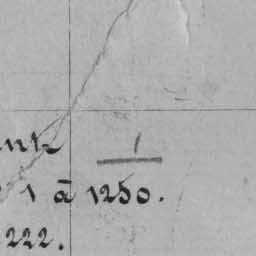 1
1 à 1250.
222.